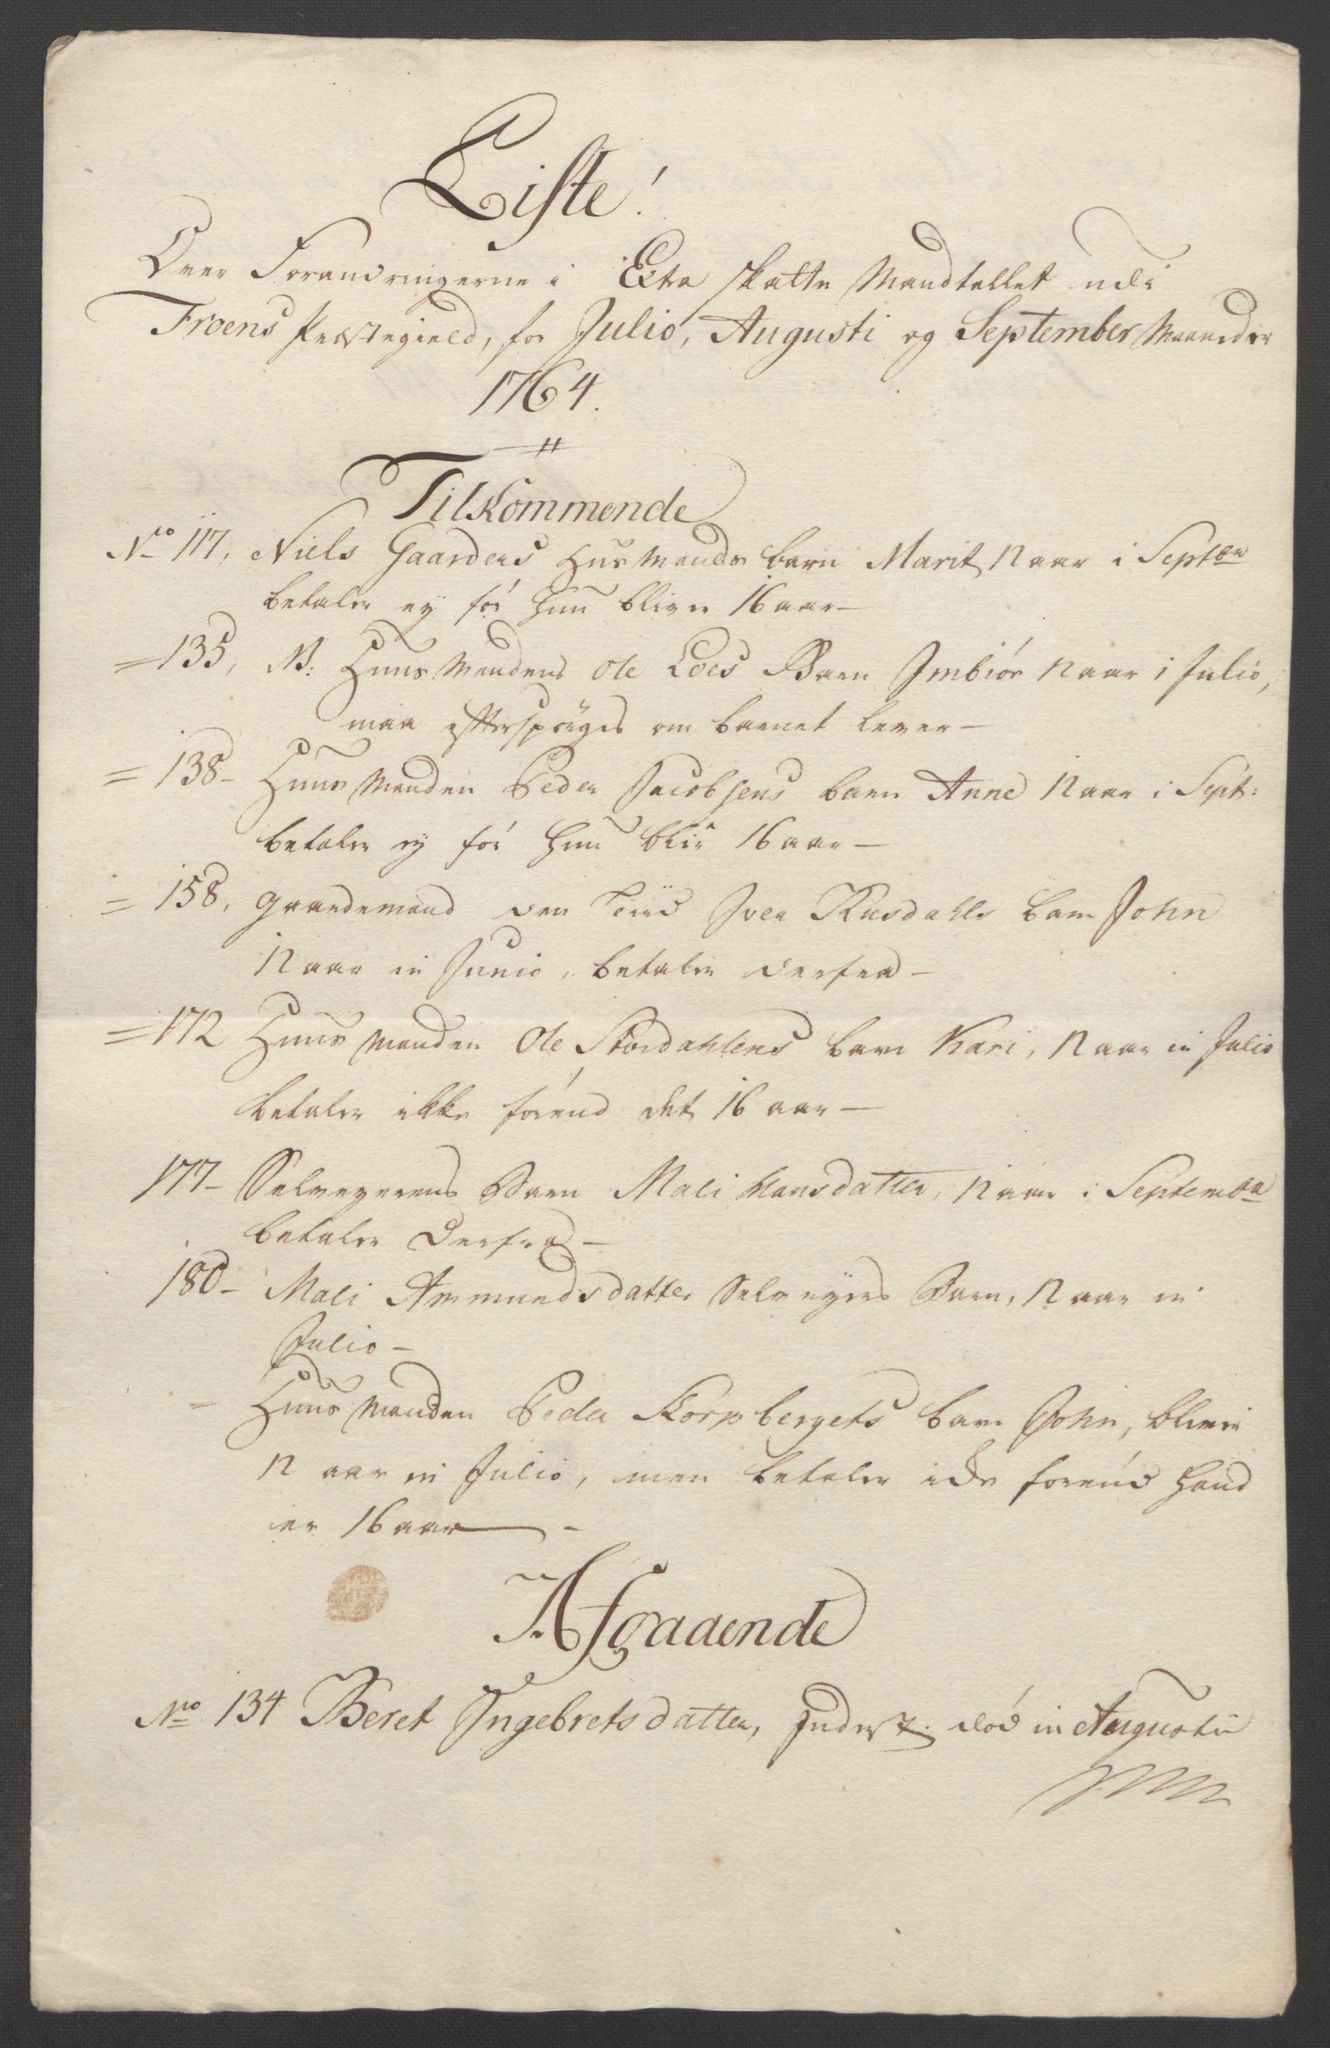 Liste!
Over Forandringerne i Extra skatte Mandtallet udi
Froens Præstegield, for Julio, Augusti og September Maaneder
1764.
Tilkommende
No 117, Niels Gaarders Huusmands barn Marit 12 aar i Septbr
betaler ey før hun bliver 16 aar—
= 135, N: Huusmandens Ole Loes Barn Imbiør 12 aar i Julio,
maa efterspørges om barnet lever—
= 138- Huusmanden Peder Jacobsens barn Anne 12 aar i Sept:
betaler ey før hun blir 16 aar—
= 158, gaardemand Iver Rusdahls barn John
12 aar in Junio, betaler derfra—
= 172 Huusmanden Ole Stordahlens barn Kari, 12 aar in Julio
betaler ikke førend det 16 aar—
177- Selveyerens Barn Mali Hansdatter, 12 aar i Septembr
betaler derfra—
180- Mali Ammundsdatter Selveyers Barn, 12 aar in
Julio—
= Huusmanden Peder Korpbergets barn John, bliver
12 aar in Julio, men betaler førend hand
er 16 aar—
Afgaaende
No 134 Beret Ingebretsdatter, Inderst. død in Augusti